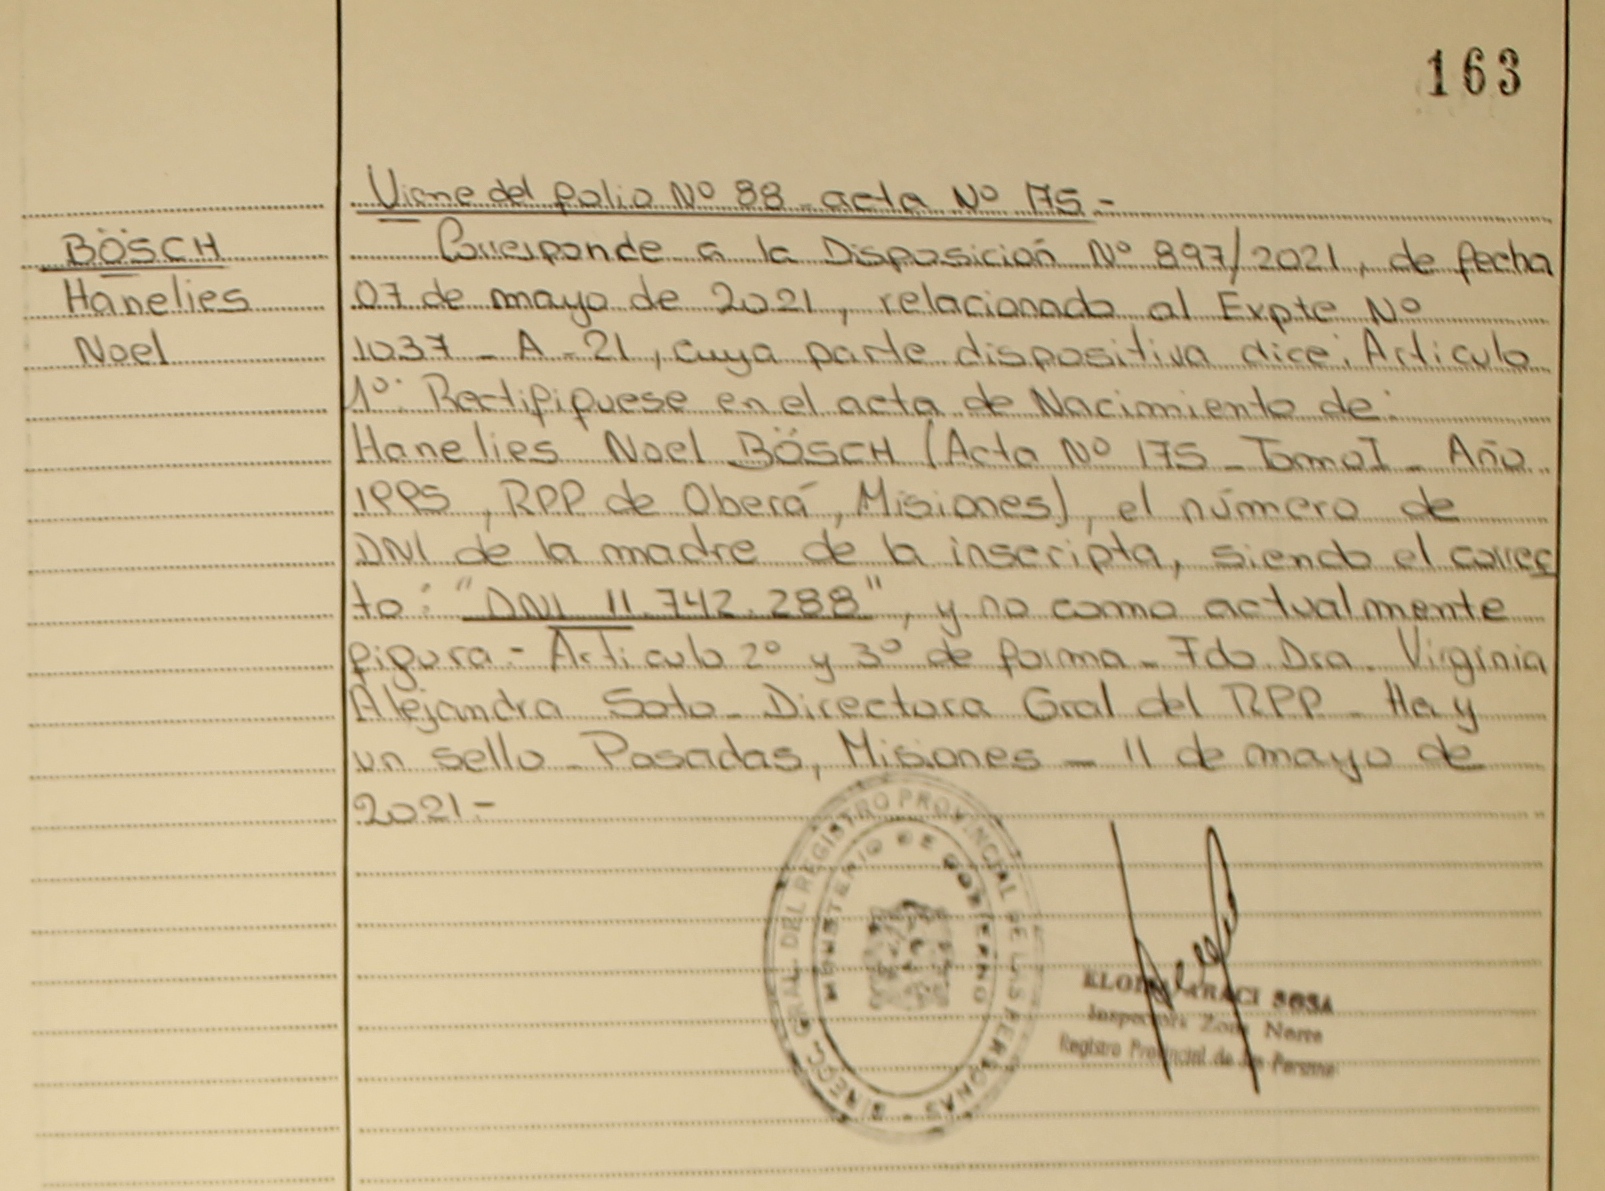 163
Viene del folio Nº 88 - acta Nº 175 -
BÖSCH
Hanelies
Noel
Corresponde a la Disposición Nº 897/2021, de fecha
07 de mayo de 2021, relacionado al Expte Nº
1037 - A - 21, cuya parte dispositiva dice: Articulo
1º: Rectifiquese en el acta de Nacimiento de:
Hanelies Noel BÖSCH (Acta Nº 175 - Tomo I - Año
1995, RPP de Oberá, Misiones), el número de
DNI de la madre de la inscripta, siendo el correc
to: "DNI 11.742.288", y no como actualmente
figura.- Articulo 2º y 3º de forma - Fdo. Dra. Virginia
Alejandra Soto - Directora Gral del RPP - Hay
un sello - Posadas, Misiones - 11 de mayo de
2021 -
DIRECC. GRAL. DEL REGISTRO PROVINCIAL DE LAS PERSONAS
MINISTERIO DE GOBIERNO
ARACI SOSA
Inspectora Zona Norte
Registro Provincial de las Personas